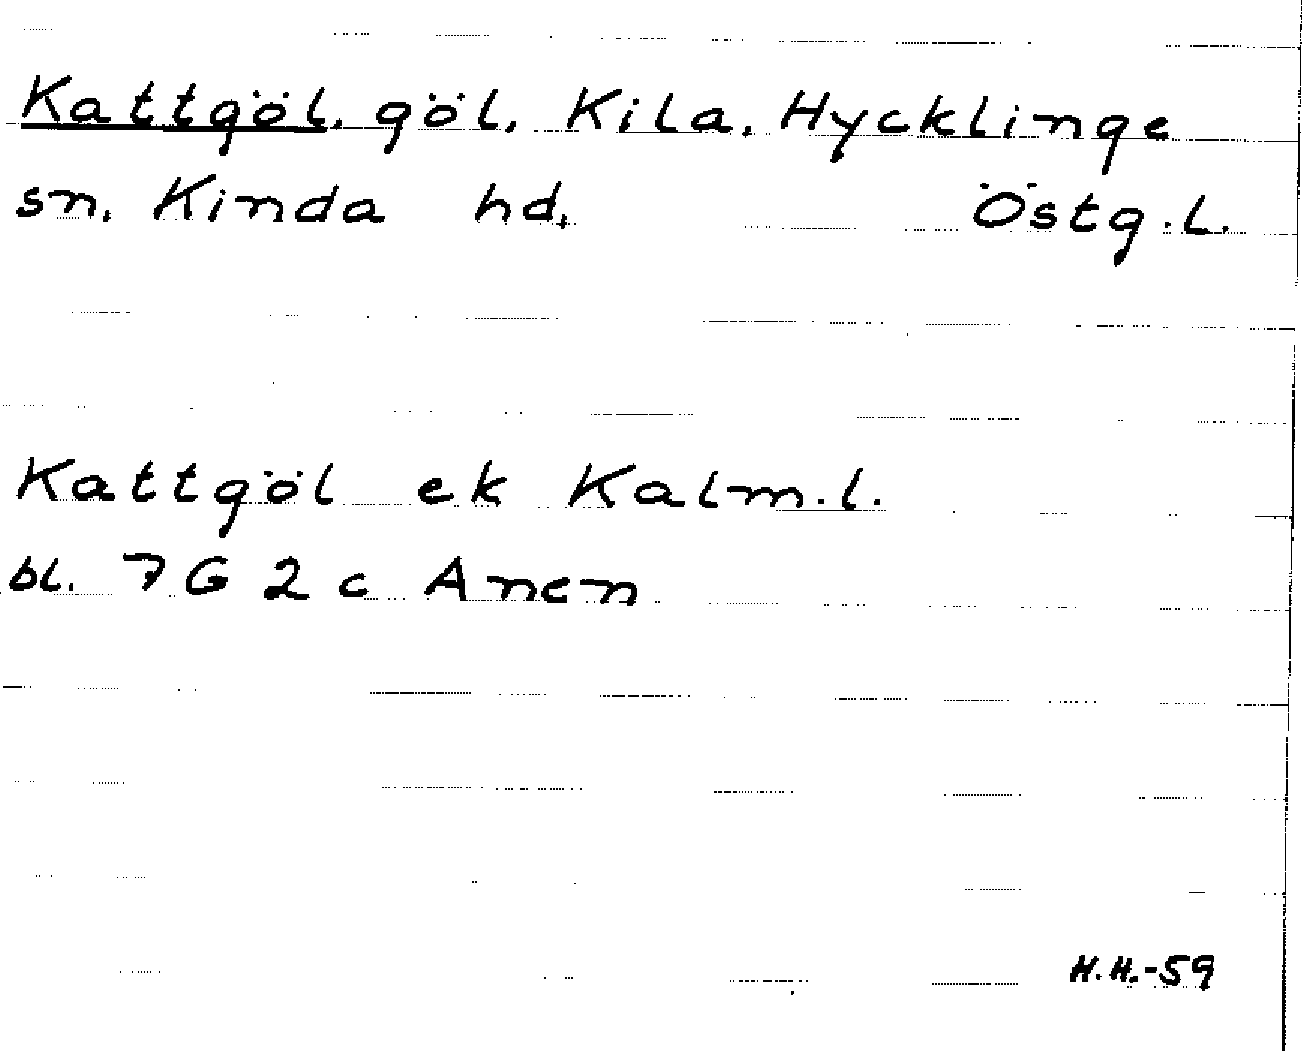 Kattgöl, göl, Kila, Hycklinge
sn. Kinda hd. Östg.l.
Kattgöl ek Kalm.l.
bl. 7G 2c Anen
H.H.-59